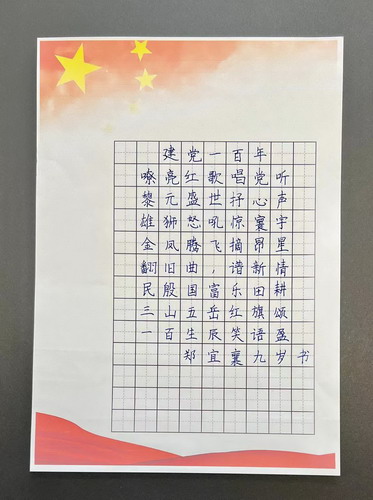 建党一百年
嘹亮红歌唱党听
黎元盛世抒心声
雄狮怒吼惊寰宇
金凤腾飞摘昂星
翻旧曲，谱新情
民殷国富乐田耕
三山五岳红旗颂
一百生辰笑语盈
郑宜襄九岁书